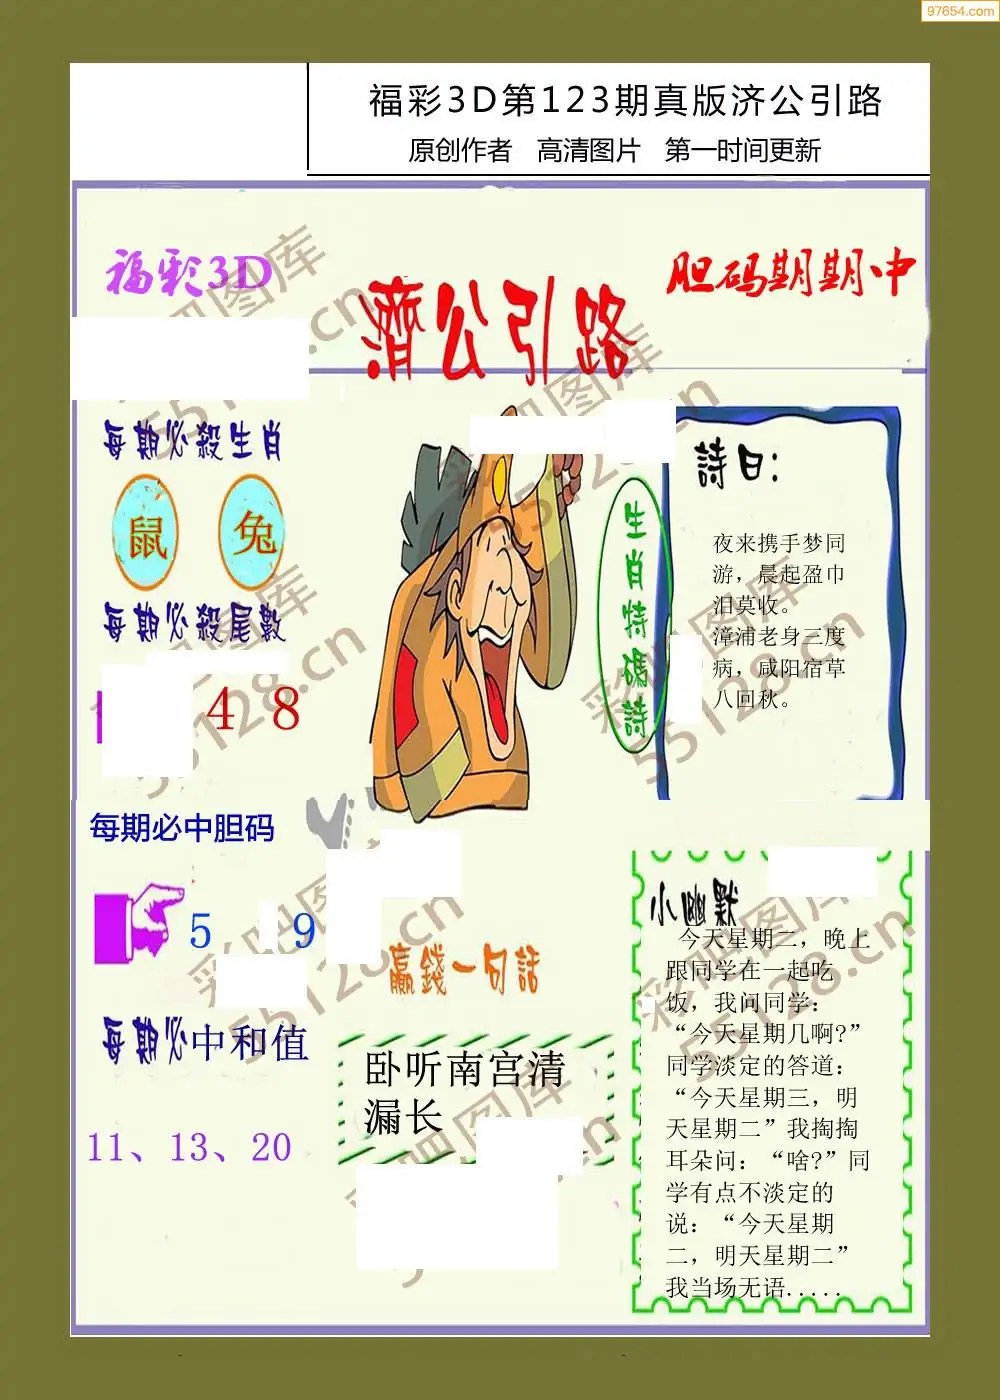 97654.com
福彩3D第123期真版济公引路
原创作者 高清图片 第一时间更新
福彩3D
濟公引路
胆码期期中
每期必殺生肖
鼠 兔
每期必殺尾數
4 8
每期必中胆码
5 9
每期必中和值
11、13、20
生肖特碼詩
詩曰:
夜来携手梦同
游，晨起盈巾
泪莫收。
漳浦老身三度
病，咸阳宿草
八回秋。
赢錢一句話
卧听南宫清
漏长
小幽默
今天星期二，晚上
跟同学在一起吃
饭，我问同学：
“今天星期几啊?”
同学淡定的答道：
“今天星期三，明
天星期二”我掏掏
耳朵问：“啥?”同
学有点不淡定的
说：“今天星期
二，明天星期二”
我当场无语.....
彩吧图库
55128.cn
彩吧图库
55128.cn
彩吧图库
55128.cn
彩吧图库
55128.cn
彩吧图库
55128.cn
彩吧图库
55128.cn
彩吧图库
55128.cn